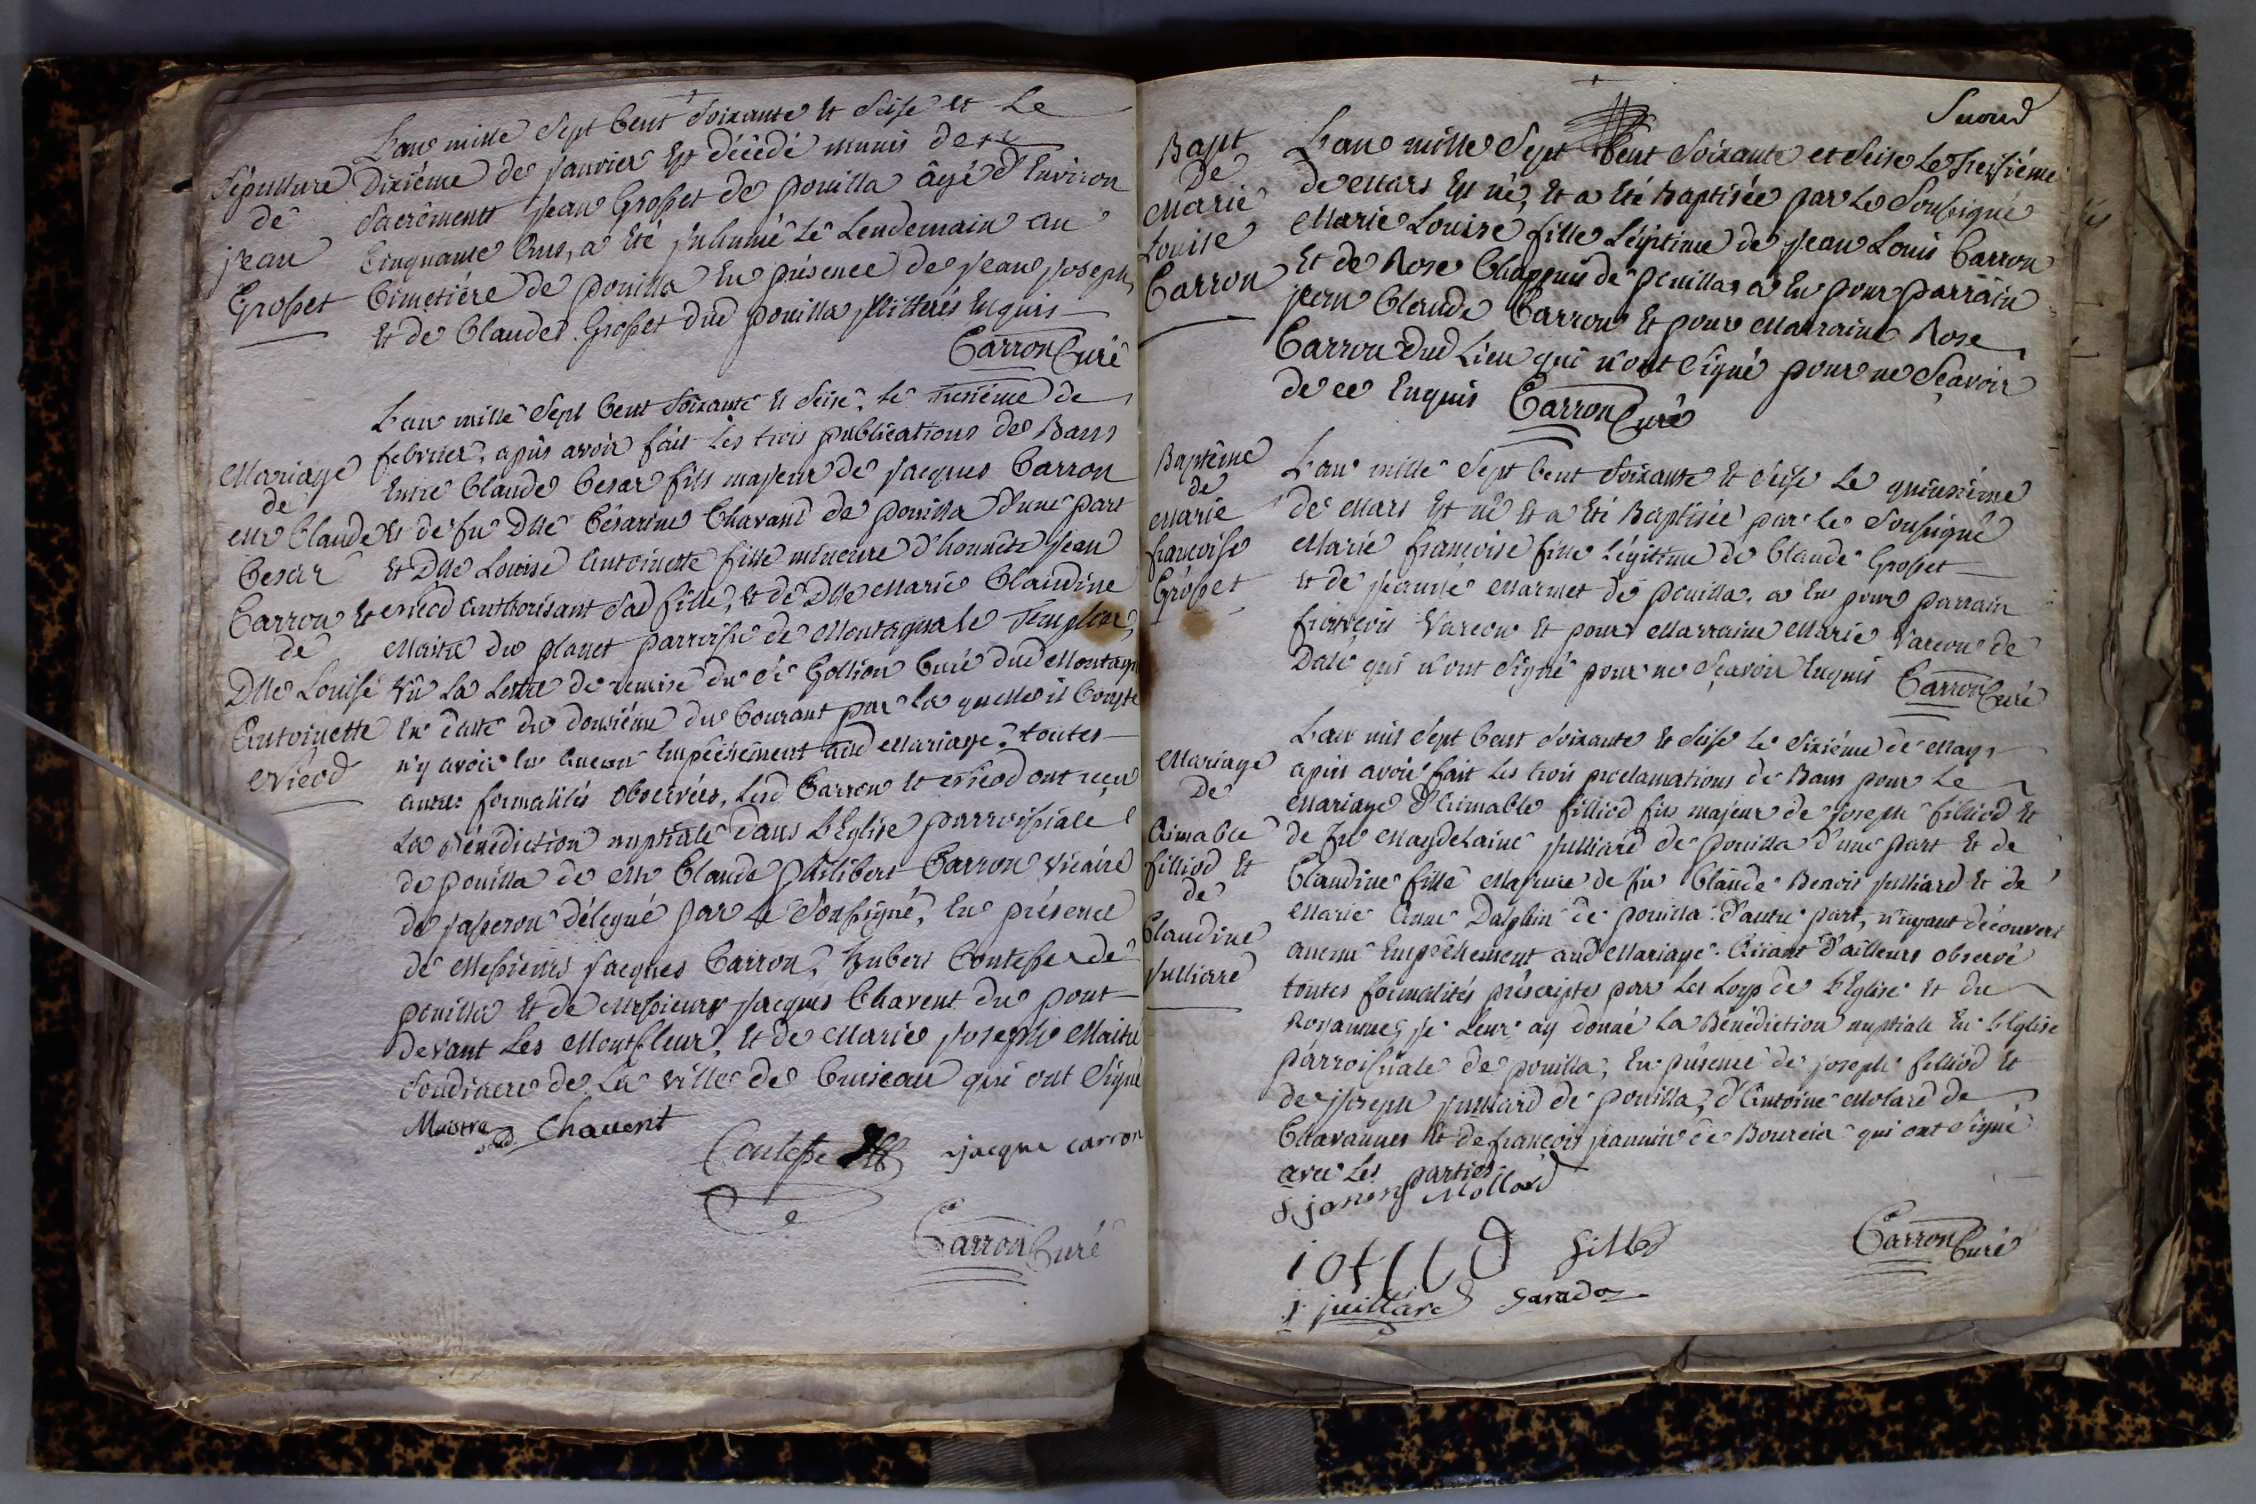 L'an mille Sept Cent Soixante Et Seise et Le
Sépulture
de
jean
Grosset
Dixiéme de janvier Est décédé munis des
Sacréments jean Grosset de pouilla âgé d'Environ
Cinquante Ans, a été inhumé Le Lendemain au
Cimetiére de pouilla En présence de jean joseph
Et de Claude Grosset dud pouilla jllitterés Enquis
Carron Curé
Mariage
de
Mr Claude
Cesar
Carron Et
de
Dlle Louise
Antoinette
Nicod
L'an mille Sept Cent Soixante Et Seise, Le treisiéme de
febvrier, après avoir fait Les trois publications de Bans
Entre Claude Cesar fils majeur de jacques Carron
Et de fû Dlle Césarine Chavant de pouilla d'une part
Et Dlle Louise Antoinette fille mineure d'honnête jean
Nicod Authorisant Sad fille, Et de Dlle Marie Claudine
Maitre du planet parroisse de Montagna le Templier,
Vû La Lettre de remise du Sr Gollion Curé dud Montagna
En datte du dousiéme du Courant par La quelle il Conste
n'y avoir Eu Aucun Empéchement aud Mariage, toutes
autres formalités observées, Lesd Carron et Nicod ont reçu
La Bénédiction nuptiale dans L'Eglise parroissiale
de pouilla de Mr Claude philibert Carron Vicaire
de jasseron délegué par Le Soussigné, En présence
de Messieurs jacques Carron, hubert Contesse de
pouilla Et de Messieurs jacques Chavent du pont
devant Les Montfleur, Et de Marie joseph Maitre
Soudiacre de La ville de Cuiseau qui ont Signé
Maistre Chauent
Contesse jacque carron
Carron Curé
Bapt
De
Marie
Louise
Carron
L'an mille Sept Cent Soixante et Seise Le treisiéme
de Mars Est né, Et a Eté Baptisée par Le Soussigné
Marie Louise fille Légitime de jean Louis Carron
Et de Rose Chappuis de pouilla, a Eu pour parrain
jean Claude Carron Et pour Marraine Rose
Carron dud Lieu qui n'ont Signé pour ne Sçavoir
de ce Enquis Carron Curé
Baptême
de
Marie
françoise
Grosset
L'an mille Sept Cent Soixante Et Seise Le quinsiéme
de Mars Est né Et a Eté Baptisée par Le Soussigné
Marie françoise fille Légitime de Claude Grosset
Et de jeanne Marmet de pouilla, a Eu pour parrain
françois Vareon Et pour Marraine Marie Vareon de
Dalé qui n'ont Signé pour ne Sçavoir Enquis Carron Curé
Mariage
De
Aimable
filliod Et
de
Claudine
julliard
L'an mil Sept Cent Soixante Et Seise Le Sixiéme de May
après avoir fait Les trois proclamations de Bans pour Le
Mariage d'Aimable filliod fils majeur de joseph filliod Et
de fû Magdelaine julliard de pouilla d'une part Et de
Claudine fille Majeure de fû Claude Benoit julliard Et de
Marie Anne Dalphin de pouilla d'autre part, n'ayant découvert
aucun Empêchement aud Mariage. Aïant d'ailleurs observé
toutes formalités préscriptes par Les Loys de L'Eglise Et du
Royaume, je Leur ay donné La Bénédiction nuptiale En L'Eglise
parroissiale de pouilla, En présence de joseph filliod Et
de joseph julliard de pouilla, d'Antoine Molard de
Chavannes Et de françois jeannin de Bourcia qui ont Signé
avec Les parties
Mollard
Carron Curé
j juillard